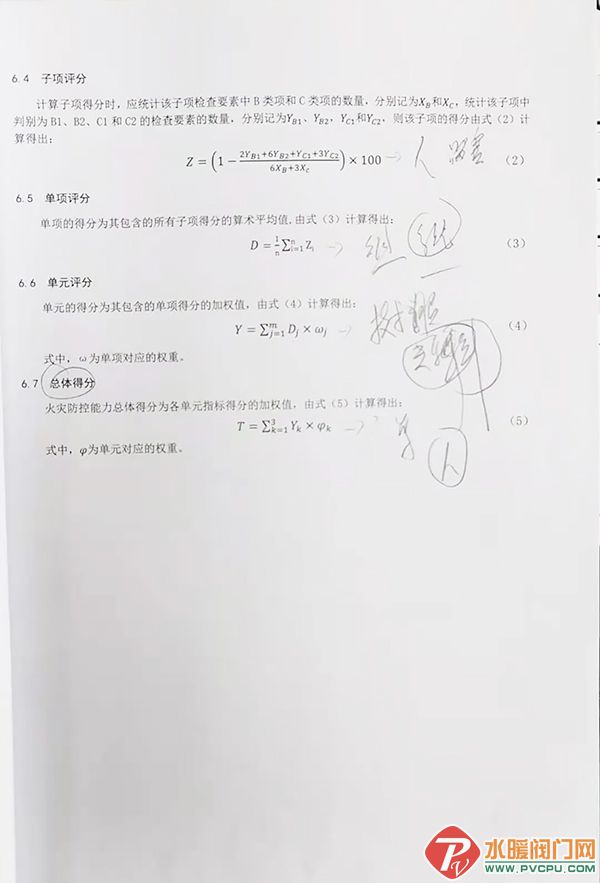 6.4 子项评分
计算子项得分时，应统计该子项检查要素中 B 类项和 C 类项的数量，分别记为X_B和X_C，统计该子项中
判别为 B1、B2、C1 和 C2 的检查要素的数量，分别记为Y_B1、Y_B2，Y_C1和Y_C2，则该子项的得分由式（2）计
算得出：
Z = (1 − (2Y_B1+6Y_B2+Y_C1+3Y_C2)/(6X_B+3X_c)) × 100 → 人 （2）
6.5 单项评分
单项的得分为其包含的所有子项得分的算术平均值,由式（3）计算得出：
D = 1/n ∑_{i=1}^{n} Z_i → （3）
6.6 单元评分
单元的得分为其包含的单项得分的加权值，由式（4）计算得出：
Y = ∑_{j=1}^{m} D_j × ω_j → （4）
式中，ω为单项对应的权重。
6.7 总体得分
火灾防控能力总体得分为各单元指标得分的加权值，由式（5）计算得出：
T = ∑_{k=1}^{3} Y_k × φ_k → （5）
人
式中，φ为单元对应的权重。
水暖阀门网
WWW.PVCPU.COM